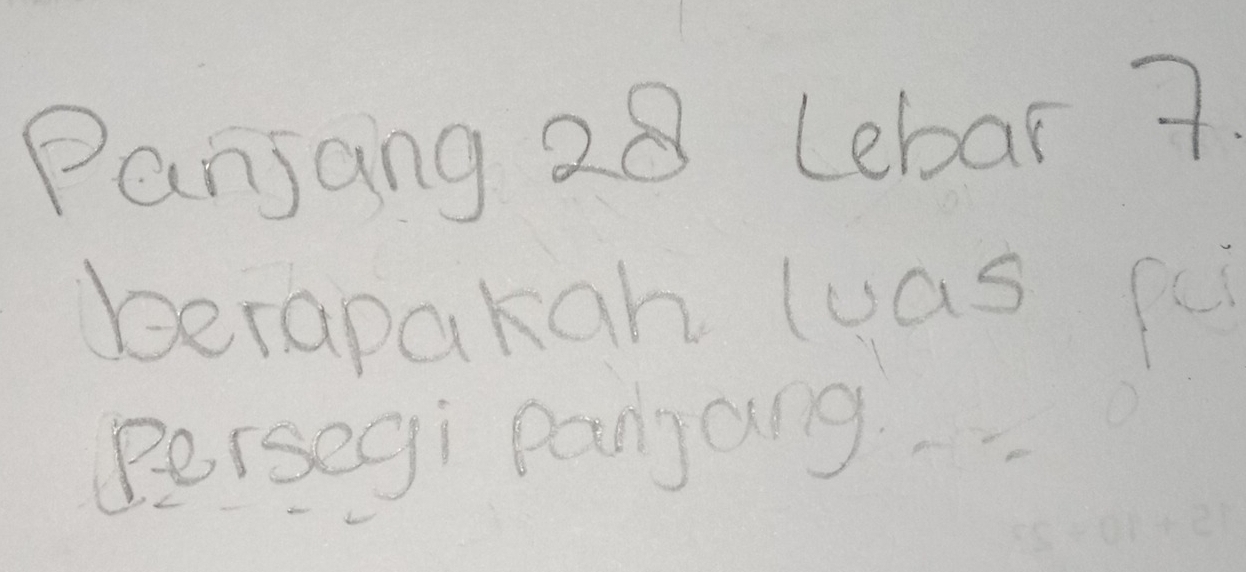 Panjang 28 Lebar 7.
berapakah luas
Persegi panjang...